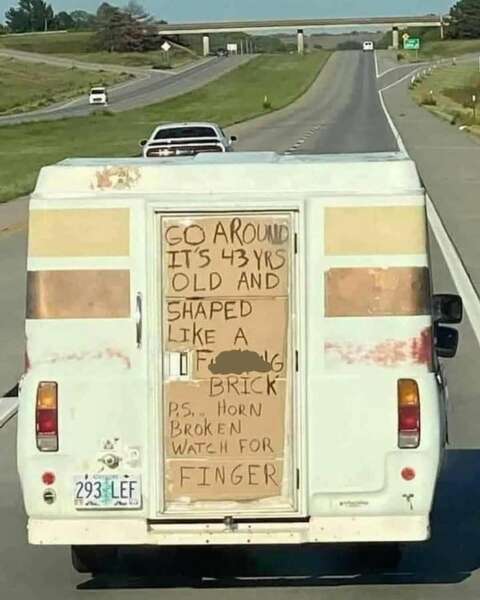 GO AROUND
IT'S 43 YRS
OLD AND
SHAPED
LIKE A
F G
BRICK
P.S.. HORN
BROKEN
WATCH FOR
FINGER
293 LEF